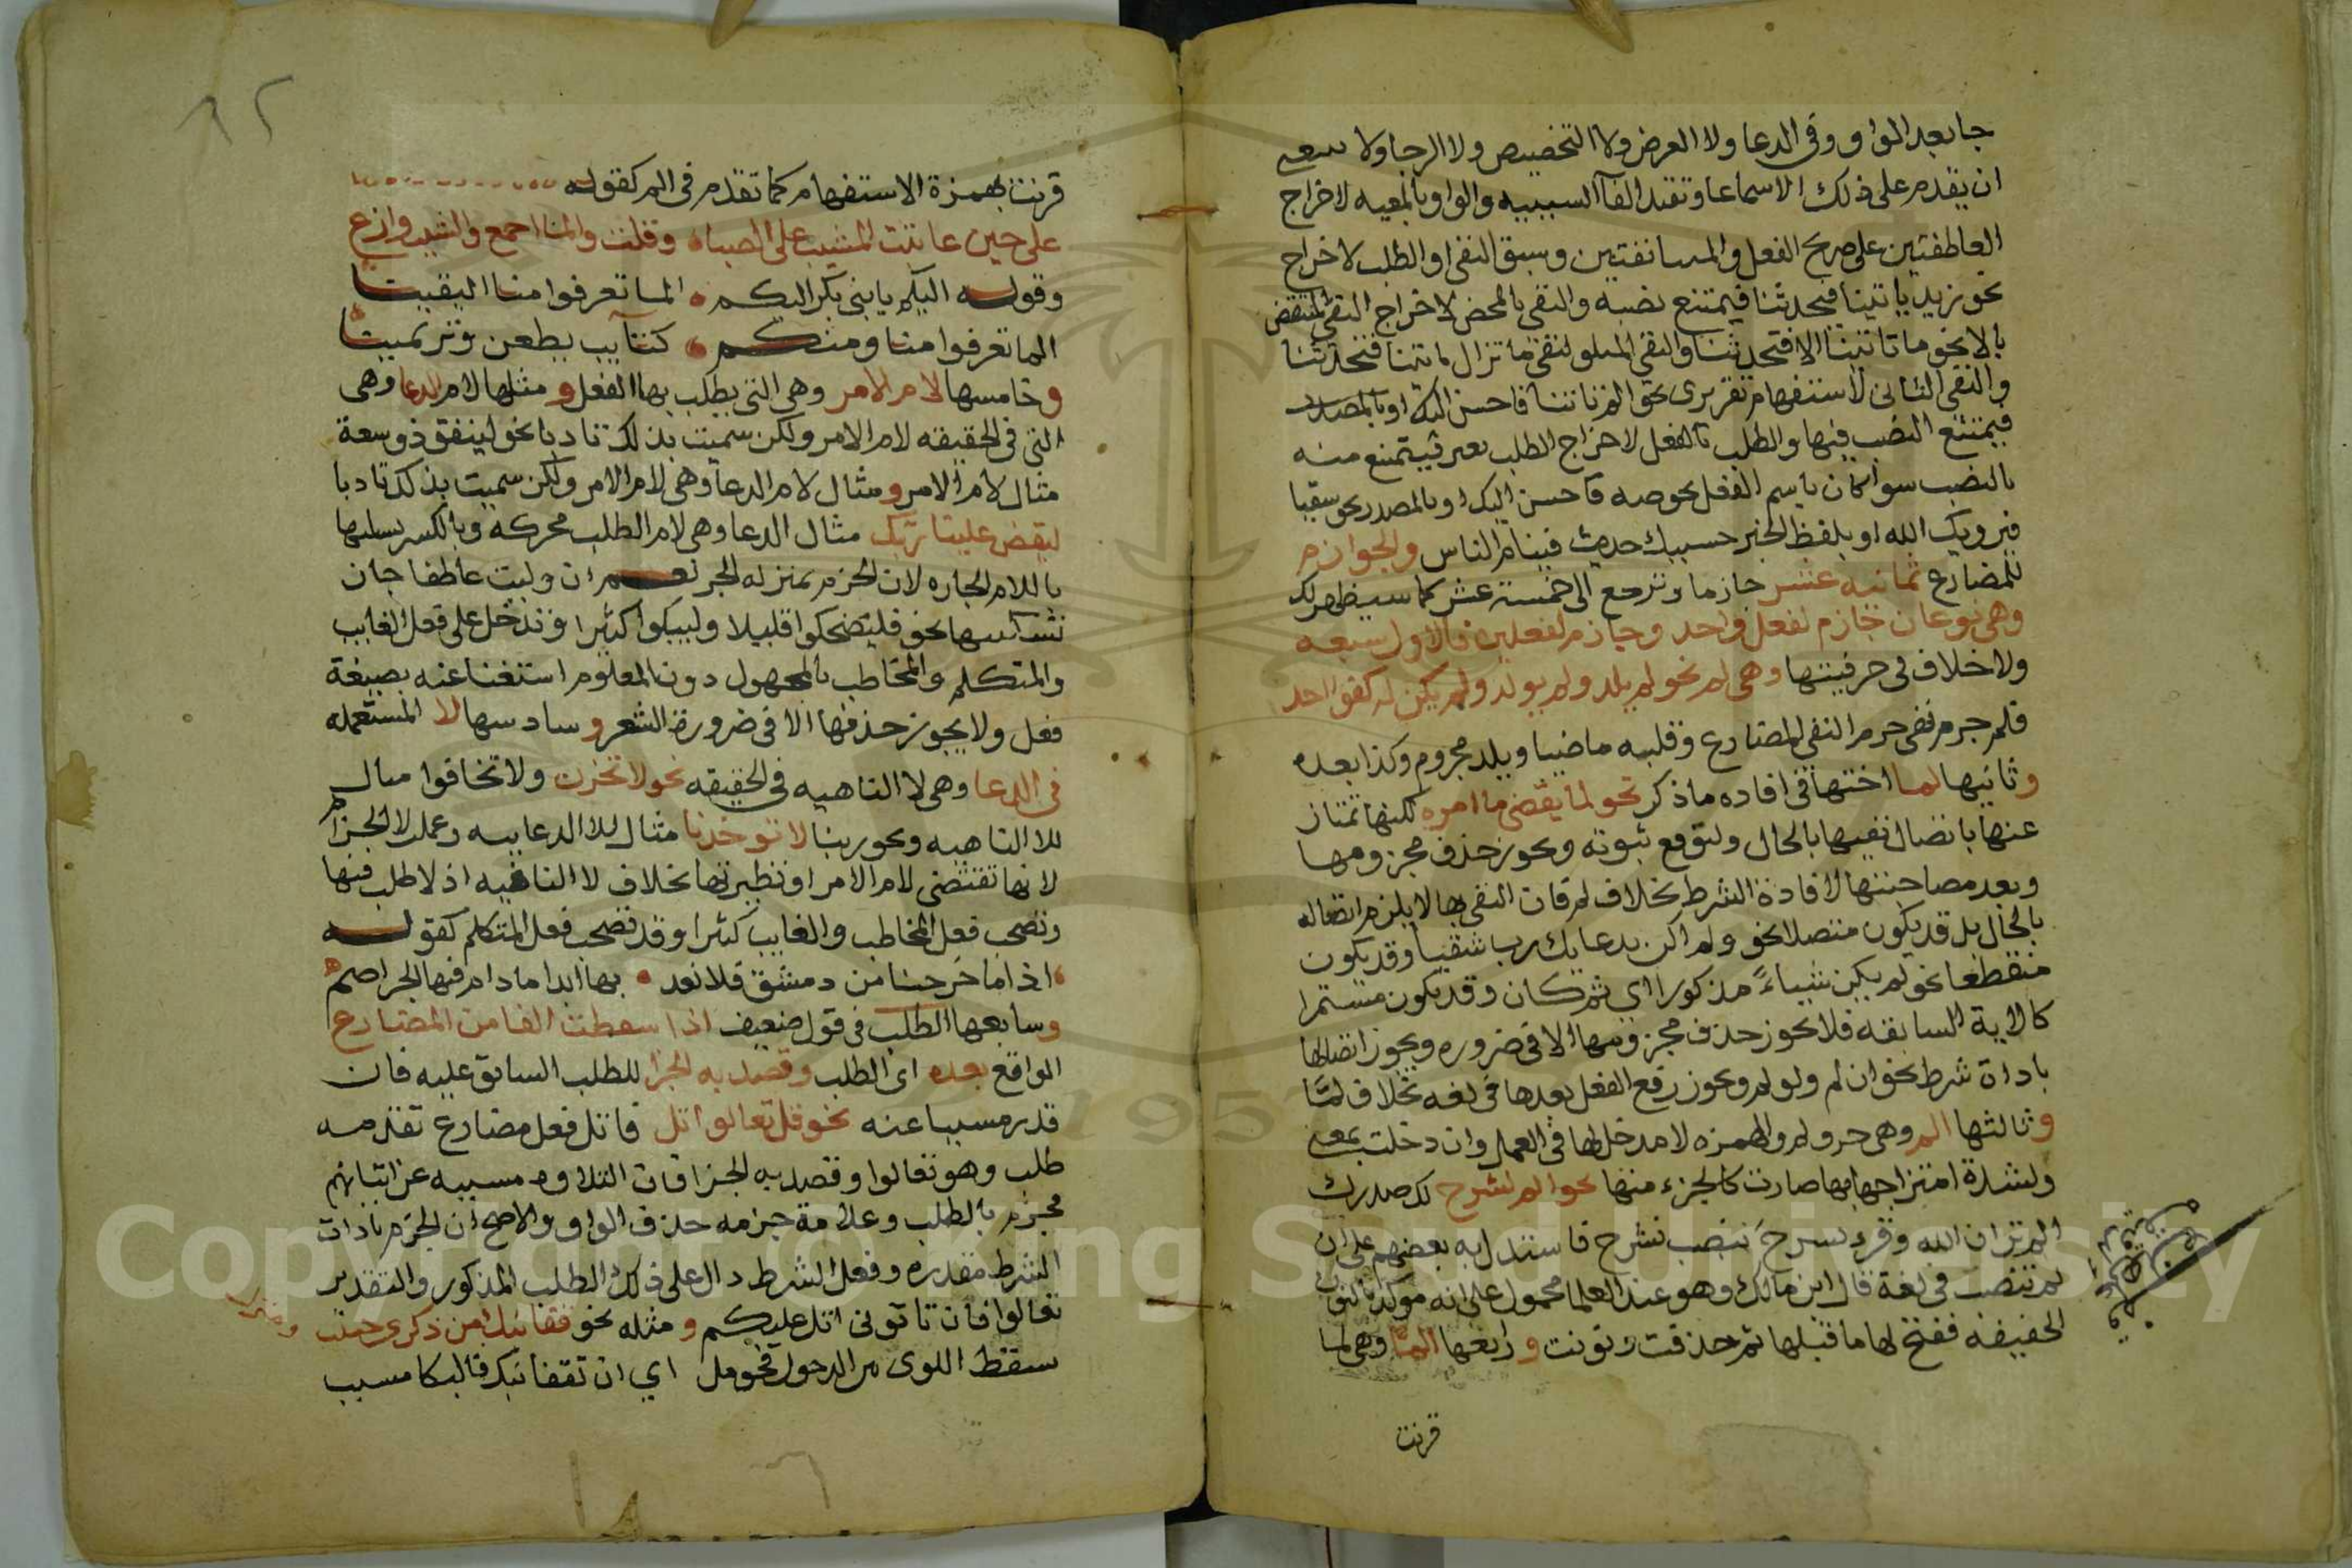 جا بعد الواو وفى الدعا ولا العرض ولا التخصيص ولا الرجا ولا
ان يقدم على ذلك الا سماعا وتقيد الفآ السببيه والواو بالمعيه لاخراج
العاطفتين على صريح الفعل والمستانفتين وسبق النفى او الطلب لاخراج
نحو زيد ياتينا فيحدثنا فيمتنع نصبه والنفى بالمحض لاخراج النفى المنتقض
بالا نحو ما تاتينا الا فتحدثنا والنفى المتلو لنفى ما تزال تاتينا فتحدثنا
والنفى التالى لاستفهام تقريرى نحو الم تاتنا فاحسن اليك او بالمصدر
فيمتنع النصب فيها والطلب بالفعل لاخراج الطلب بغيره فيمتنع منه
بالنصب سوا كان باسم الفعل نحو صه فاحسن اليك او بالمصدر نحو سقيا
فيرويك الله او بلفظ الخبر حسبك حديث فينام الناس والجوازم
للمضارع ثمانيه عشر جازما وترجع الى خمسة عشر كما سيظهر لك
وهى نوعان جازم لفعل واحد وجازم لفعلين فالاول سبعه
ولا خلاف فى حرفيتها وهى لم نحو لم يلد ولم يولد ولم يكن له كفوا احد
فلم حرم نفى حرم النفى المضارع وقلبه ماضيا ويلد مجزوم وكذا بعده
وثانيها لما اختها فى افاده ما ذكر نحو لما يقض ما امره لكنها تمتاز
عنها باتصال نفيها بالحال ولتوقع ثبوته وبجوز حذف مجزومها
وبعد مصاحبتها لافادة الشرط بخلاف لم فان النفى بها لا يلزم اتصاله
بالحال بل قد يكون متصلا نحو ولم اكن بدعايك رب شقيا وقد يكون
منقطعا نحو لم يكن شياءً مذكورا اى ثم كان وقد يكون مستمرا
كالاية السابقه فلا يجوز حذف مجزومها الا فى ضروره ويجوز اتصالها
باداة شرط نحو ان لم ولو لم ويجوز رفع الفعل بعدها فى لغه بخلاف لمّا
وثالثها الم وهى حرو لم والهمزه لا مدخل لها فى العمل وان دخلت بمعنى
ولشدة امتزاجها بها صارت كالجزء منها نحو الم نشرح لك صدرك
الم تر ان الله وقرء نشرحَ بنصب نشرح فاستدل به بعضهم على ان
لم تنصب فى لغة قال ابن مالك وهو عند العلما محمول على انه موكد بالنون
الخفيفه ففتح لها ما قبلها ثم حذفت ونونت ورابعها المّا وهى لما
قرنت
قرنت بهمزة الاستفهام كما تقدم فى الم كقوله
على حين عاتبت المشيب على الصباه وقلت والمّا اصحو والشيب وازع
وقوله اليكم يا بنى بكر اليكم ه المّا تعرفوا منا اليقيتا
الما تعرفوا منا ومنكم ه كتآيب يطعن وترتميتا
وخامسها لام الامر وهى التى يطلب بها الفعل ومثلها لام الدعا وهى
التى فى الحقيقه لام الامر ولكن سميت بذلك تادبا نحو لينفق ذو سعة
مثال لام الامر ومثال لام الدعا وهى لام الامر ولكن سميت بذلك تادبا
ليقض علينا ربك مثال الدعا وهى لام الطلب محركه وبالكسر
باللام الجاره لان الجزم بمنزله الجر نعم ان وليت عاطفا جاز
تسكينها نحو فليضحكوا قليلا وليبكوا كثيرا وتدخل على فعل الغايب
والمتكلم والمخاطب بالمجهول دون المعلوم استغنا عنه بصيغة
فعل ولا يجوز حذفها الا فى ضرورة الشعر وسادسها لا المستعمله
فى الدعا وهى لا الناهيه فى الحقيقه نحو لا تحزن ولا تخافوا مثال
للا الناهيه ونحو ربنا لا تؤخذنا مثال للا الدعاييه وعملت لا الجزم
لانها تقتضى لام الامر او نظيرتها بخلاف لا النافيه اذ لا طلب فيها
وتصحب فعل المخاطب والغايب كثيرا وقد تصحب فعل المتكلم كقوله
اذا ما خرجنا من دمشق فلا نعد ه بها ابدا ما دام فيها الجراضم
وسابعها الطلب فى قول ضعيف اذا سقطت الفا من المضارع
الواقع بعده اى الطلب وقصد به الجزا للطلب السابق عليه فان
قدر مسببا عنه نحو قل تعالوا اتل فاتل فعل مضارع تقدمه
طلب وهو تعالوا وقصد به الجزا فان التلاوه مسببه عن اتيانهم
مجزم بالطلب وعلامة جزمه حذف الواو والاصح ان الجزم باداة
الشرط مقدره وفعل الشرط دال على ذلك الطلب المذكور والتقدير
تعالوا فان تاتونى اتل عليكم ومثله نحو قفا نبك من ذكرى حبيب ومنزل
سقط اللوى من الدخول فحومل اي ان تقفا نبك فالبكا مسبب